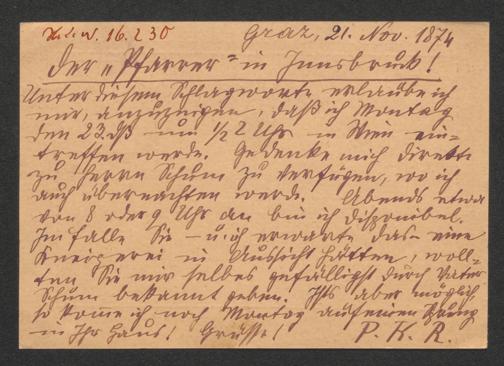 H.I.N. 16.230
Graz, 21. Nov. 1874
Der „Pfarrer" in Innsbruck!
Unter diesem Schlagworte erlaube ich
mir, anzuzeigen, daß ich Montag
den 23. dß um ½ 2 Uhr in Wien ein=
treffen werde. Gedenke mich direkte
zu Herrn Schum zu verfügen, wo ich
auch übernachten werde. Abends etwa
von 8 oder 9 Uhr an bin ich disponibel.
Im Falle Sie – u. ich erwarte das – eine
Kneiperei in Aussicht hätten, woll=
ten Sie mir selbes gefälligst durch Vater
Schum bekannt geben. Ists aber möglich,
so komme ich noch Montag auf einen Sprung
in Ihr Haus! Grüsse! P. K. R.